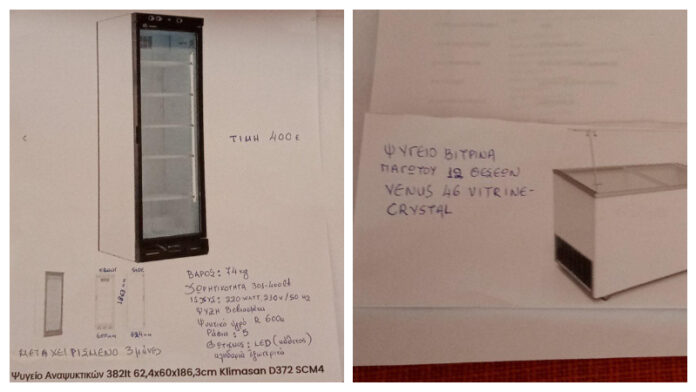 ΤΙΜΗ 400€
ΒΑΡΟΣ: 74 kg
ΧΩΡΗΤΙΚΟΤΗΤΑ 301-400lt
ΙΣΧΥΣ: 220 WATT, 230V/50 Hz
ΨΥΞΗ
Ψυκτικό υγρό R 600a
Ράφια: 5
Φωτισμός: LED (κάθετος)
ΜΕΤΑΧΕΙΡΙΣΜΕΝΟ 3 μήνες
Ψυγείο Αναψυκτικών 382lt 62,4x60x186,3cm Klimasan D372 SCM4
ΨΥΓΕΙΟ ΒΙΤΡΙΝΑ
ΠΑΓΩΤΟΥ 12 ΘΕΣΕΩΝ
VENUS 46 VITRINE-
CRYSTAL